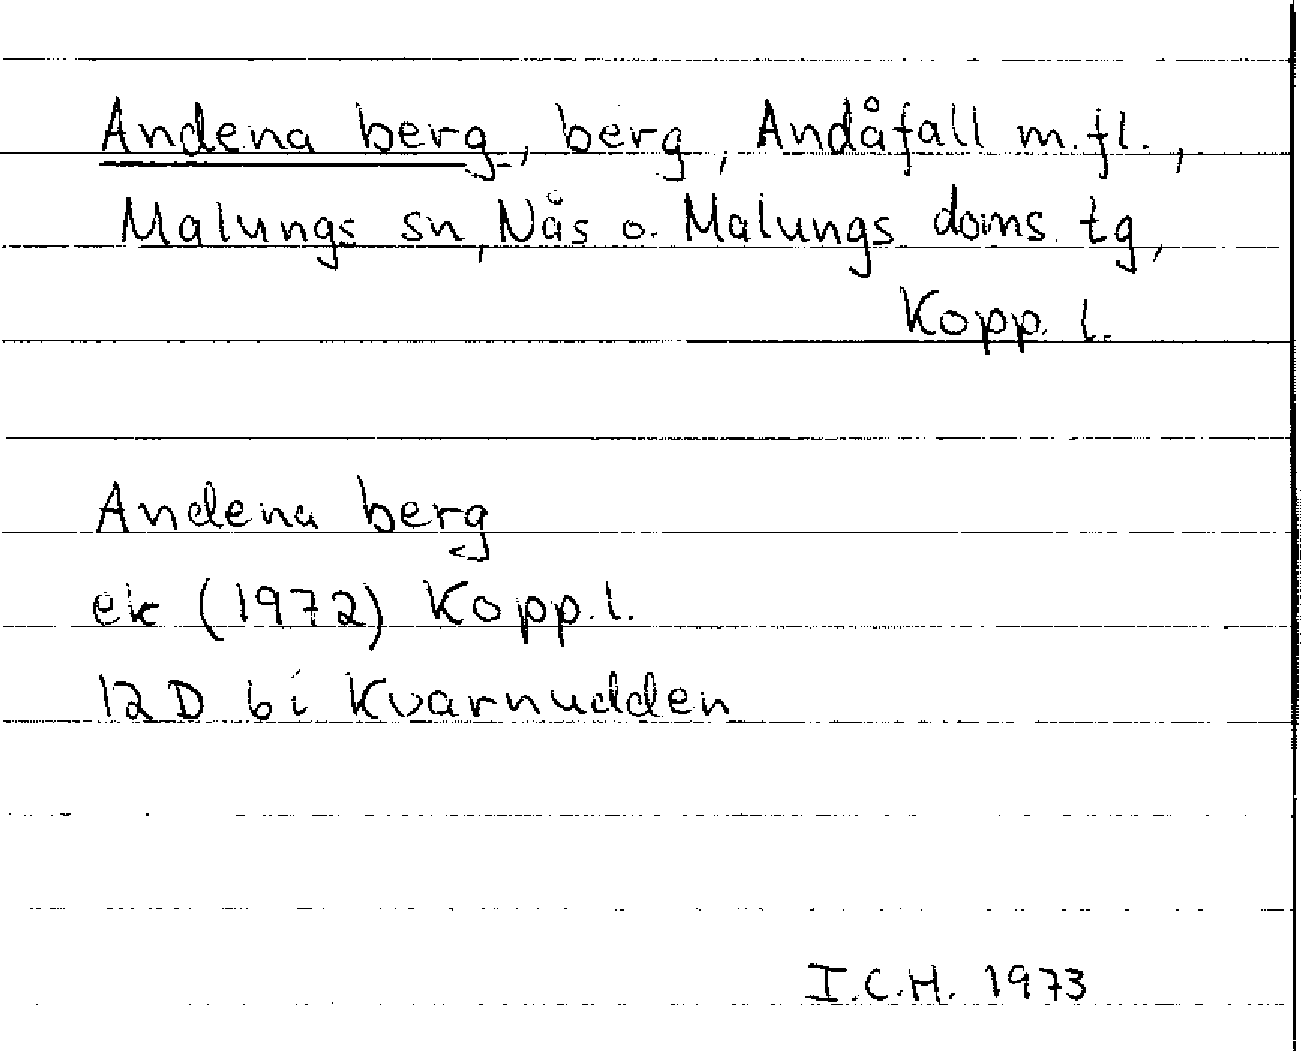 Andena berg, berg, Andåfall m.fl.,
Malungs sn, Nås o. Malungs doms. tg,
Kopp. l.
Andena berg
ek (1972) Kopp. l.
12D 6i Kvarnudden
I.C.H. 1973